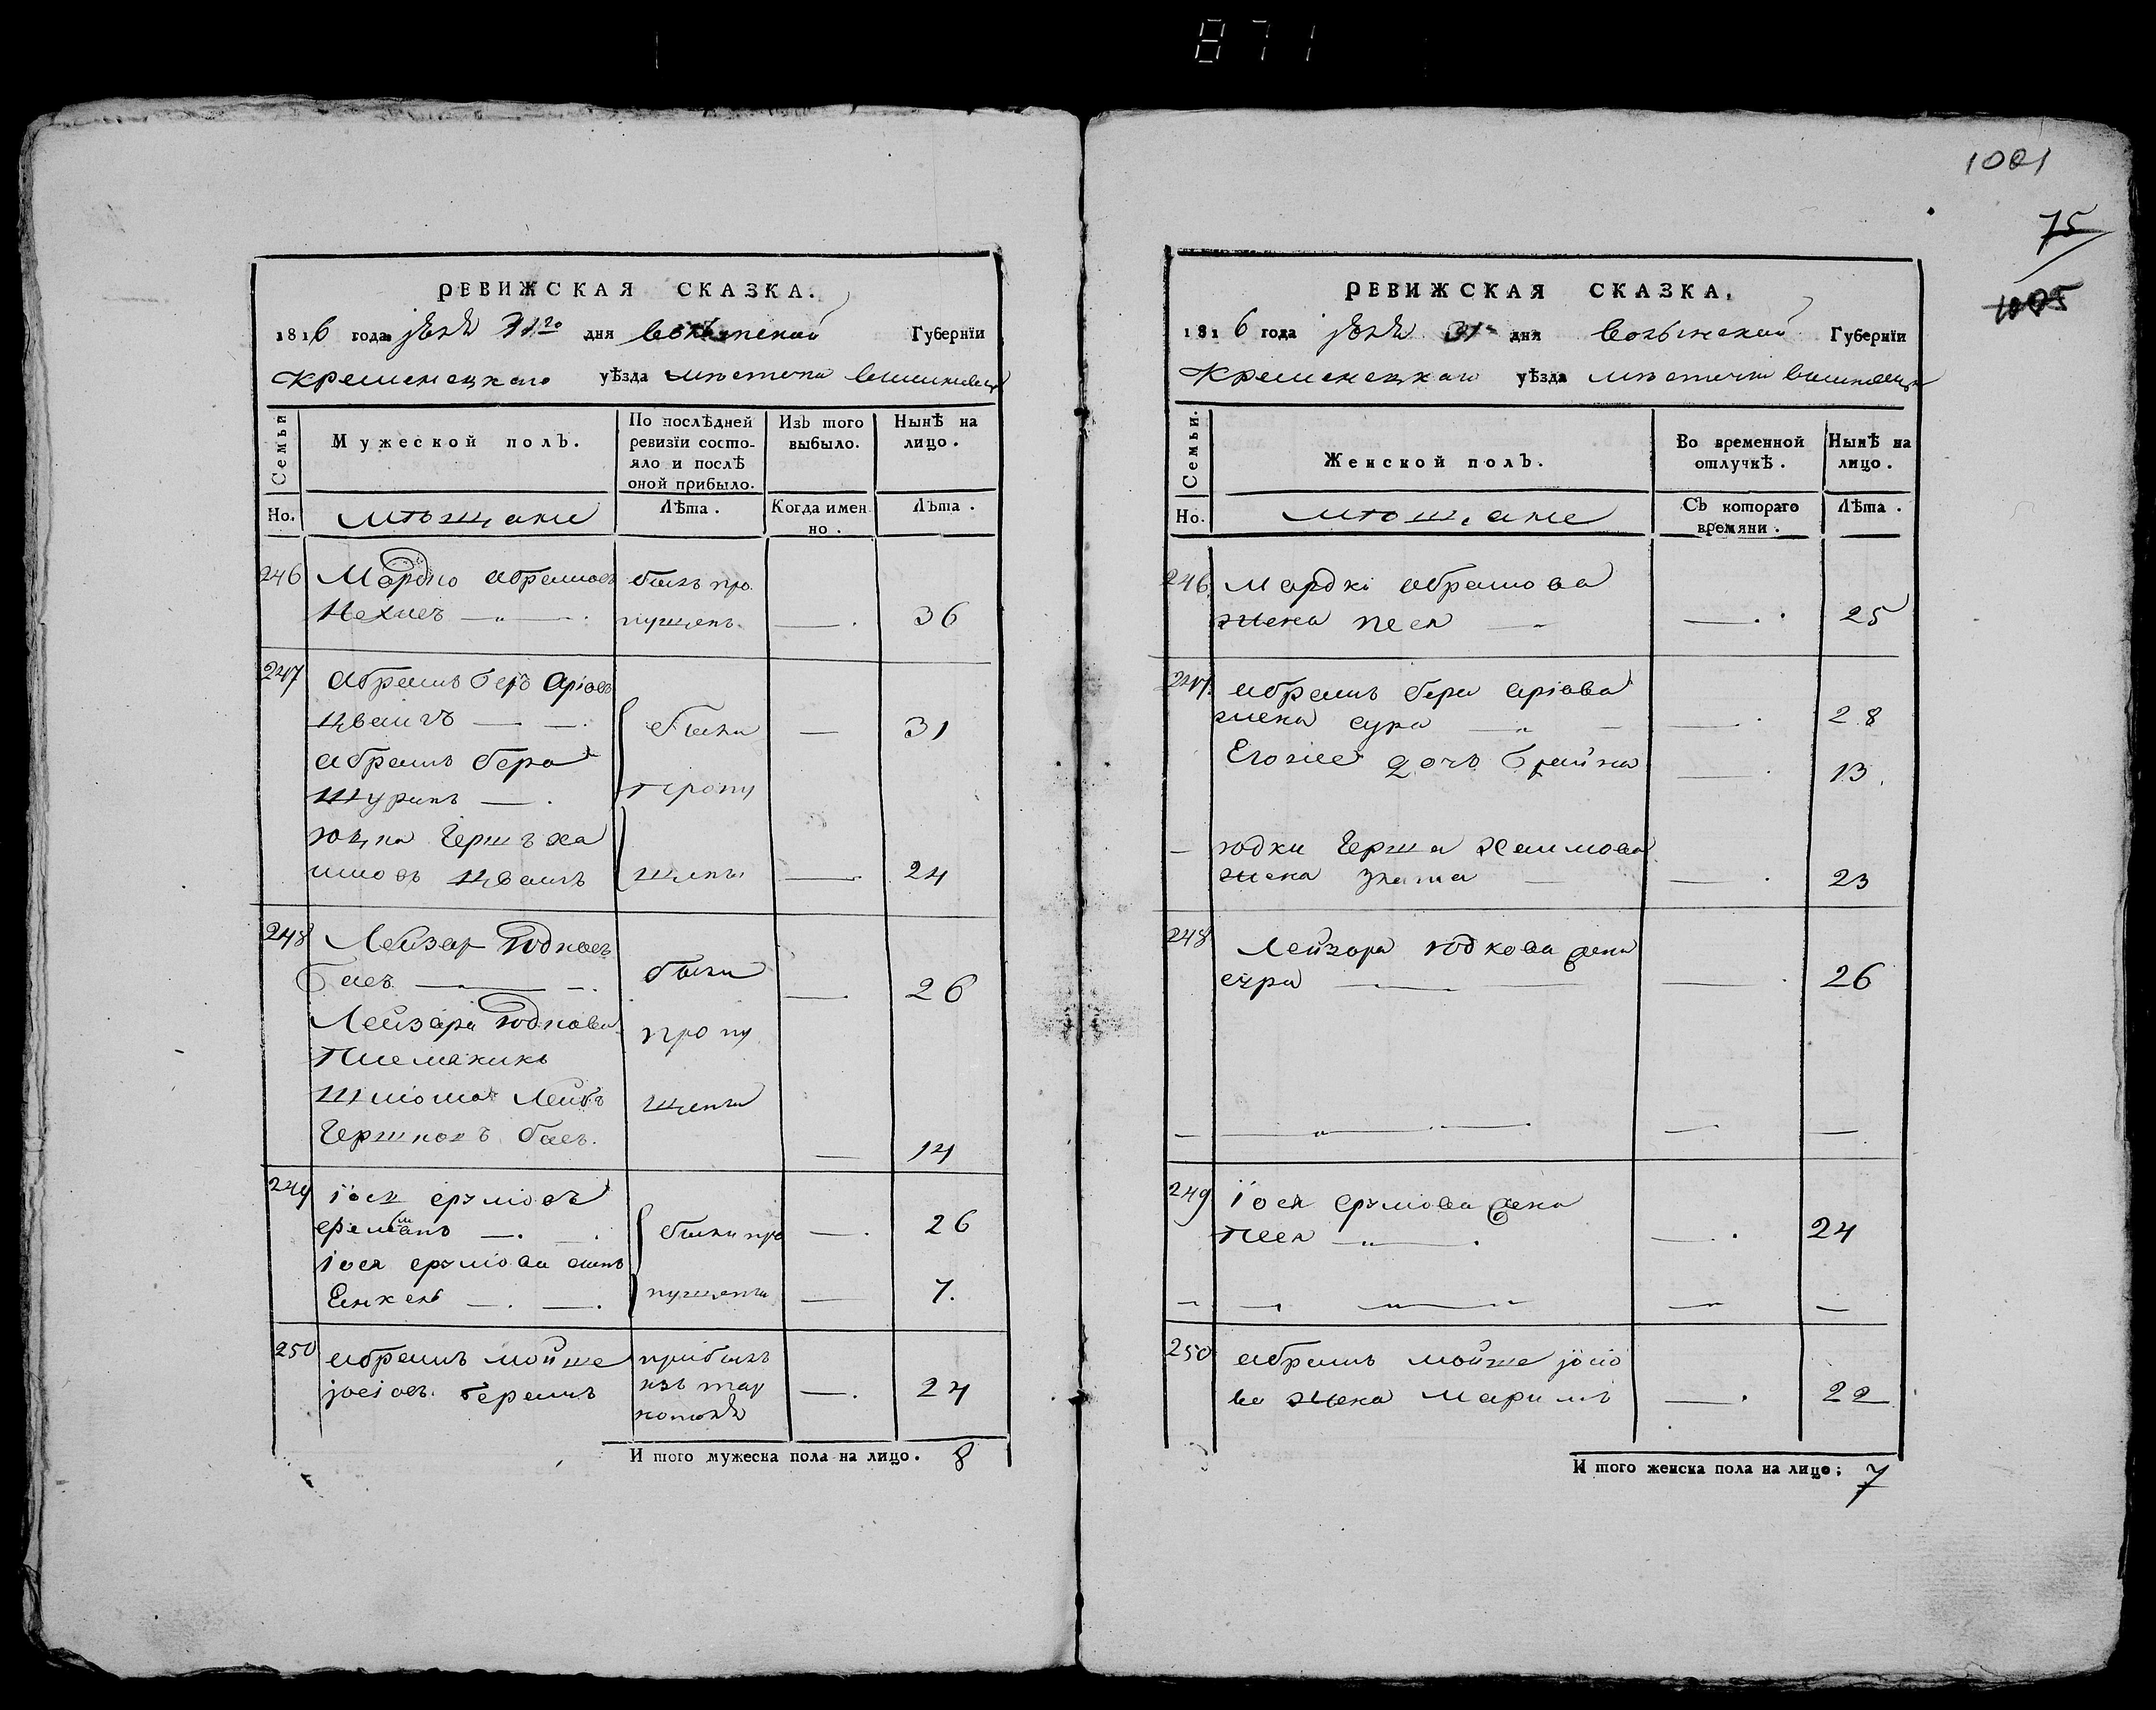 871
1001
75
1005
РЕВИЖСКАЯ СКАЗКА.
1816 года дня Волынской Губернїи
Кременецкаго уѣзда мѣстечка Вишневца
Семьи
Мужеской полъ.
По послѣдней ревизїи состояло и послѣ оной прибыло.
Изъ того выбыло.
Нынѣ на лицо.
Но.
мѣщане
Лѣта.
Когда именно.
Лѣта.
246 Мордко Абрамовъ былъ про
пущенъ — 36
247 Абрамъ Беръ Арїовъ
Цвайгъ — были — 31
Абрамъ Бера
Шуринъ — пропу
Юдка Гершъ Ха
имовъ Цвайгъ щены — 24
248 Лейзар Юдковъ
были — 26
Лейзора Юдкова пропу
племяникъ
Шлїома Лейбъ щены
Гершковъ — 14
249 Іося Срулїовъ
были про — 26
Іося Срулїова сынъ
пущены — 7.
250 Абрамъ Мойше прибылъ
Іосїовъ изъ — 24
И того мужеска пола на лицо. 8
РЕВИЖСКАЯ СКАЗКА.
1816 года 31 дня Волынской Губернїи
Кременецкаго уѣзда мѣстечка Вишневца
Семьи.
Женской полъ.
Во временной отлучкѣ.
Нынѣ на лицо.
Но.
мѣщане
Съ котораго времяни.
Лѣта.
246 Мордкї Абрамова
жена Песя — 25
247 Абрамъ Бера Арїова
жена Сура — 28
Егоже дочъ Брайна — 13.
— Юдки Герша Хаимова
жена Злата — 23
248 Лейзора Юдкова жена
Сура — 26
249 Іося Срулїова жена
Песя — 24
250 Абрамъ Мойше Іосїо
ва жена Маримъ — 22
И того женска пола на лицо; 7